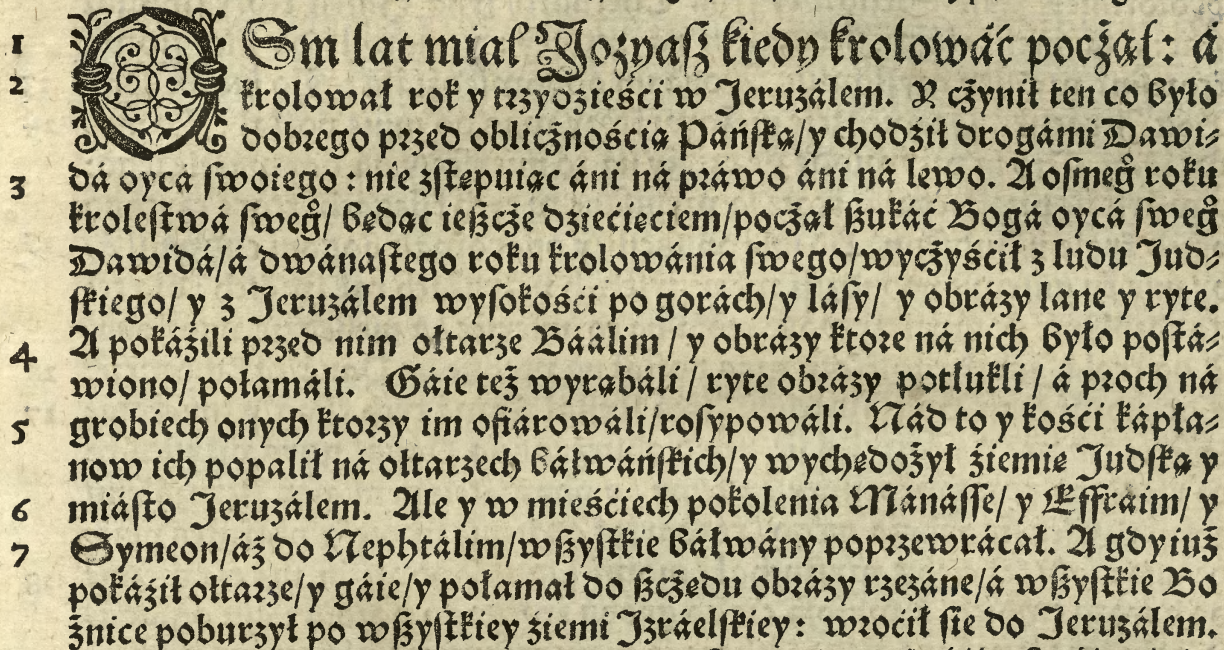 1 OSm lat miał Jozyasz kiedy krolowáć począł: á
2 krolował rok y trzydzieści w Jeruzálem. Y czynił ten co było
dobrego przed oblicznością Páńską/ y chodził drogámi Dawi⸗
dá oycá swoiego: nie zstępuiąc áni ná práwo áni ná lewo. 3 A osmeg̊ roku
krolestwá sweg̊/ będąc ieszcze dziecięciem/ począł szukáć Bogá oycá sweg̊
Dawidá/ á dwánastego roku krolowánia swego/ wyczyścił z ludu Jud⸗
skiego/ y z Jeruzálem wysokości po gorách/ y lásy/ y obrázy lane y ryte.
4 A pokáźili przed nim ołtarze Báálim/ y obrázy ktore ná nich było postá⸗
wiono/ połamáli. Gáie też wyrąbáli/ ryte obrázy potłukli/ á proch ná
5 grobiech onych ktorzy im ofiárowáli/ rosypowáli. Nád to y kości kápła⸗
now ich popalił ná ołtarzech báłwáńskich/ y wychędożył źiemię Judską y
6 miásto Jeruzálem. Ale y w mieściech pokolenia Mánásse/ y Effraim/ y
7 Symeon/ áż do Nephtálim/ wszystkie báłwány poprzewrácał. A gdy iuż
pokáźił ołtarze/ y gáie/ y połamał do szczędu obrázy rzezáne/ á wszystkie Bo
żnice poburzył po wszystkiey źiemi Jzráelskiey: wrocił sie do Jeruzálem.